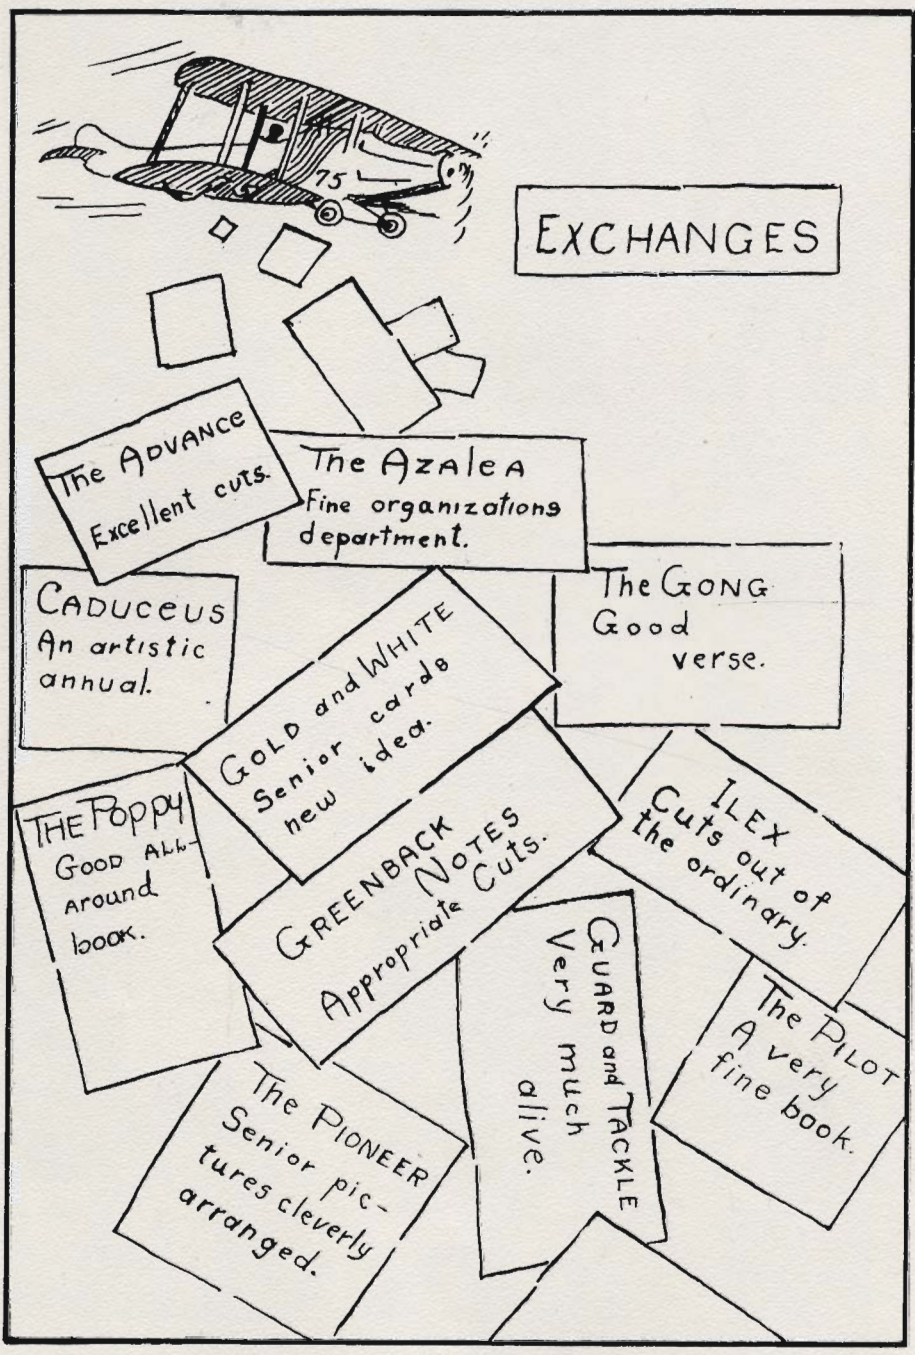 75
75
EXCHANGES
The ADVANCE
Excellent cuts.
The AzAleA
Fine organizations
department.
CADUCeUS
An artistic
annual.
GOLD and WHITE
Senior cards
new idea.
The GONG
Good
verse.
THE Poppy
GOOD ALL-
Around
book.
GREENBACK
NOTES
Appropriate Cuts.
ILEX
Cuts out of
the ordinary.
GUARD and TACKLE
Very much
alive.
The PILOT
A very
fine book.
The PIONEER
Senior pic-
tures cleverly
arranged.